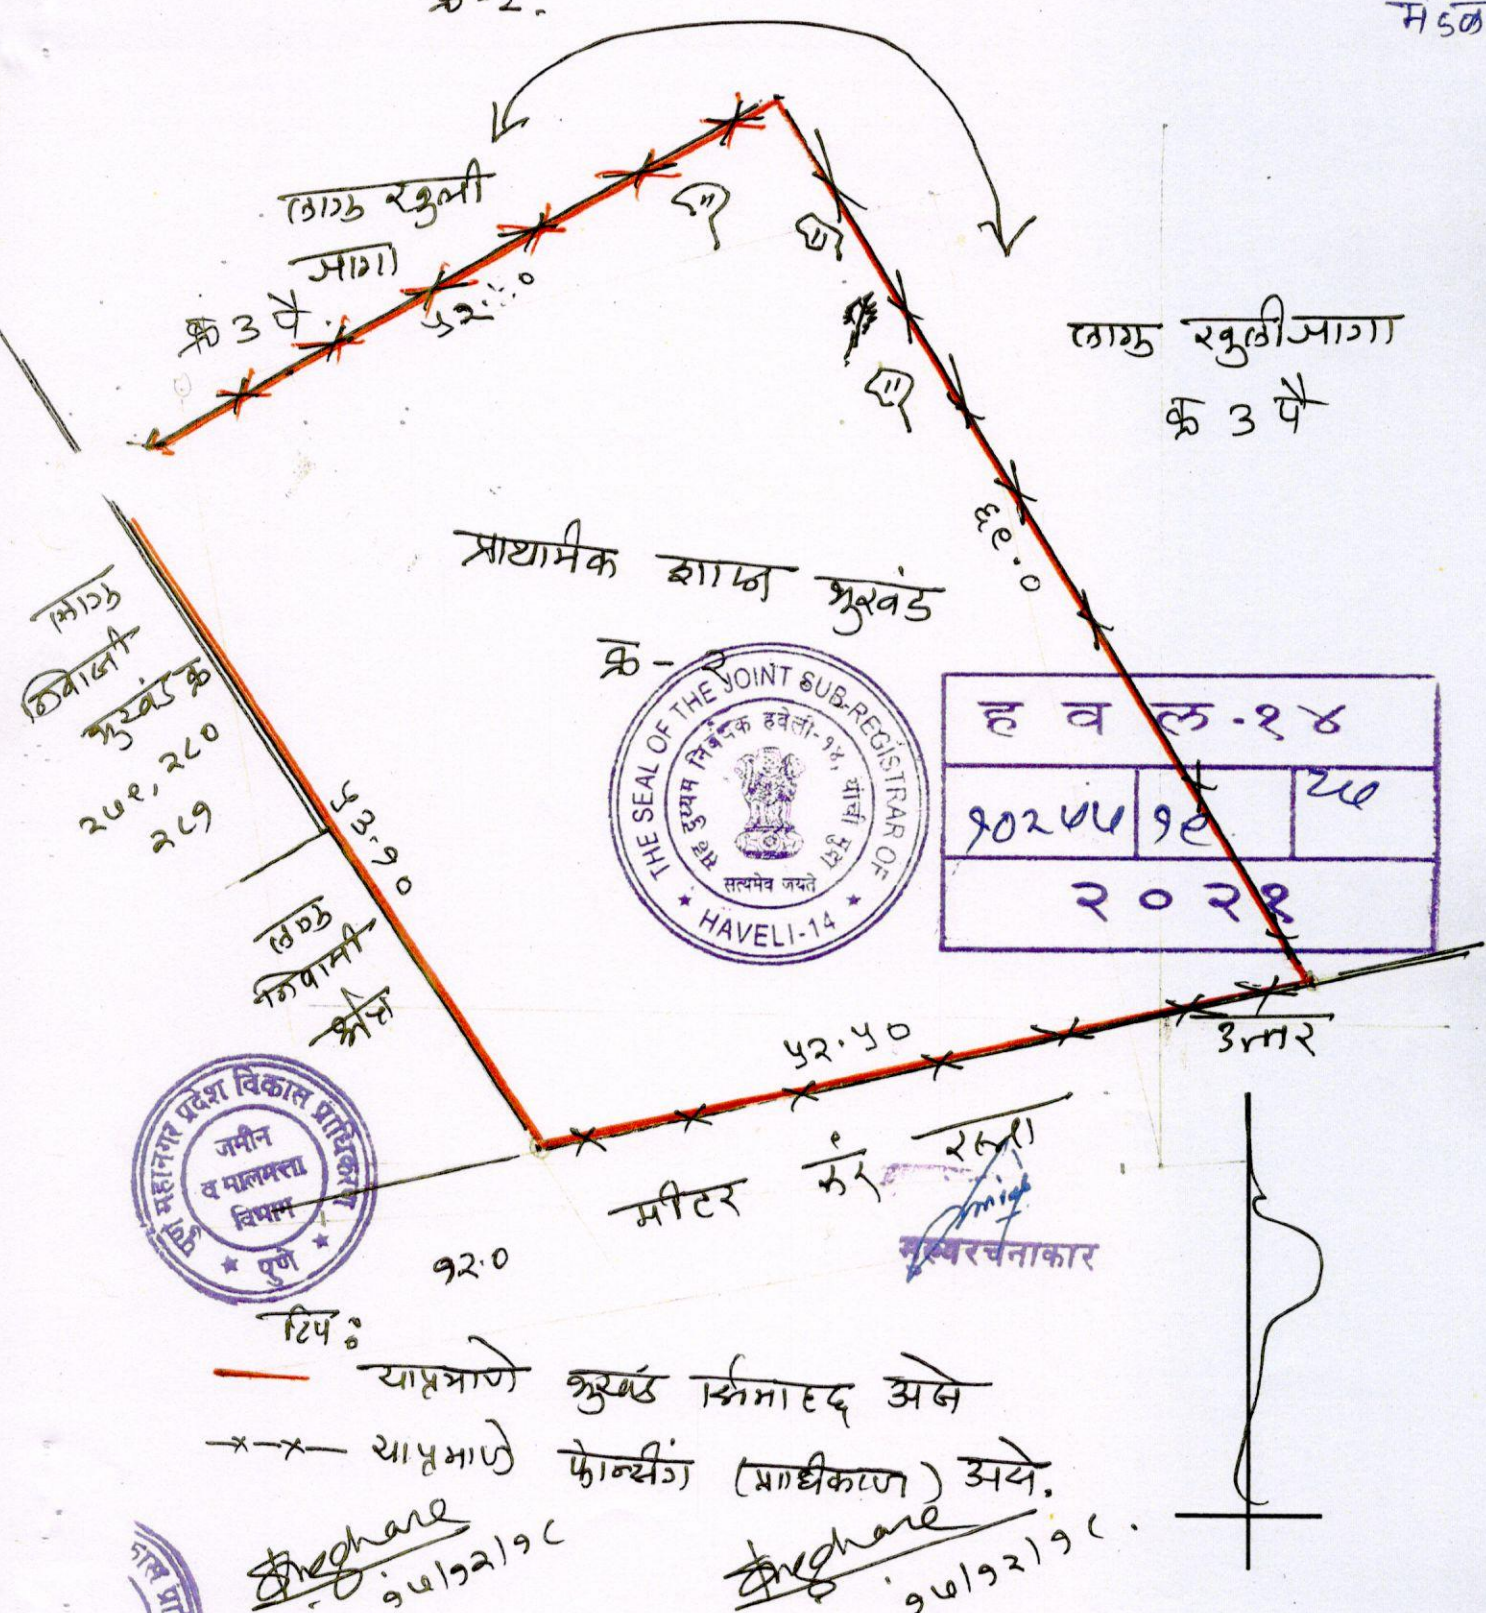 क्र-२.
लागु खुली
जागा
क्र ३ पै.
५२.०
लागु खुली जागा
क्र ३ पै
६९.०
प्राथमिक शाळा भुखंड
क्र - २
लागु
निवासी
भुखंड क्र
२७९, २८०
२८१
५३.१०
लागु
निवासी
क्षेत्र
THE SEAL OF THE JOINT SUB-REGISTRAR OF
HAVELI-14
सह दुय्यम निबंधक हवेली-१४, यांची मुद्रा
सत्यमेव जयते
ह व ल - १४
१०२७७ १९ २७
२०२१
५२.५०
उत्तर
१२.० मीटर रुंद रस्ता
पुणे महानगर प्रदेश विकास प्राधिकरण
जमीन
व मालमत्ता
विभाग
पुणे
टिप :
याप्रमाणे भुखंड सिमाहद्द असे
-x-x- याप्रमाणे फेन्सींग (प्राधीकरण) असे.
१७/१२/१८
१७/१२/१८.